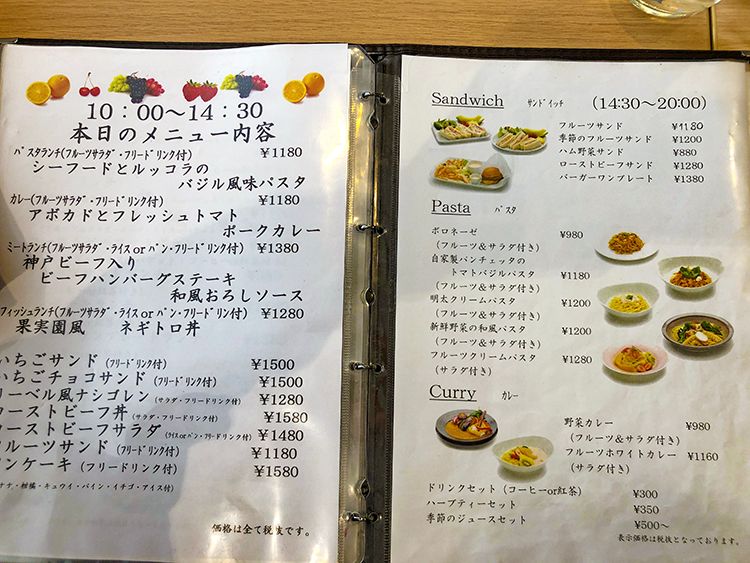 10：00～14：30
本日のメニュー内容
パスタランチ(フルーツサラダ・フリードリンク付) ¥1180
シーフードとルッコラの
バジル風味パスタ
カレー(フルーツサラダ・フリードリンク付) ¥1180
アボカドとフレッシュトマト
ポークカレー
ミートランチ(フルーツサラダ・ライス or パン・フリードリンク付) ¥1380
神戸ビーフ入り
ビーフハンバーグステーキ
和風おろしソース
フィッシュランチ(フルーツサラダ・ライス or パン・フリードリン付) ¥1280
果実園風 ネギトロ丼
いちごサンド (フリードリンク付) ¥1500
いちごチョコサンド (フリードリンク付) ¥1500
リーベル風ナシゴレン (サラダ・フリードリンク付) ¥1280
ローストビーフ丼 (サラダ・フリードリンク付) ¥1580
ローストビーフサラダ (ライス or パン・フリードリンク付) ¥1480
フルーツサンド (フリードリンク付) ¥1180
ンケーキ (フリードリンク付) ¥1580
ナナ・柑橘・キュウイ・パイン・イチゴ・アイス付)
価格は全て税抜です。
Sandwich サンドイッチ (14:30～20:00)
フルーツサンド ¥1180
季節のフルーツサンド ¥1200
ハム野菜サンド ¥880
ローストビーフサンド ¥1280
バーガーワンプレート ¥1380
Pasta パスタ
ボロネーゼ ¥980
(フルーツ＆サラダ付き)
自家製パンチェッタの
トマトバジルパスタ ¥1180
(フルーツ＆サラダ付き)
明太クリームパスタ ¥1200
(フルーツ＆サラダ付き)
新鮮野菜の和風パスタ ¥1200
(フルーツ＆サラダ付き)
フルーツクリームパスタ ¥1280
(サラダ付き)
Curry カレー
野菜カレー ¥980
(フルーツ＆サラダ付き)
フルーツホワイトカレー ¥1160
(サラダ付き)
ドリンクセット (コーヒーor紅茶) ¥300
ハーブティーセット ¥350
季節のジュースセット ¥500～
表示価格は税抜となっております。